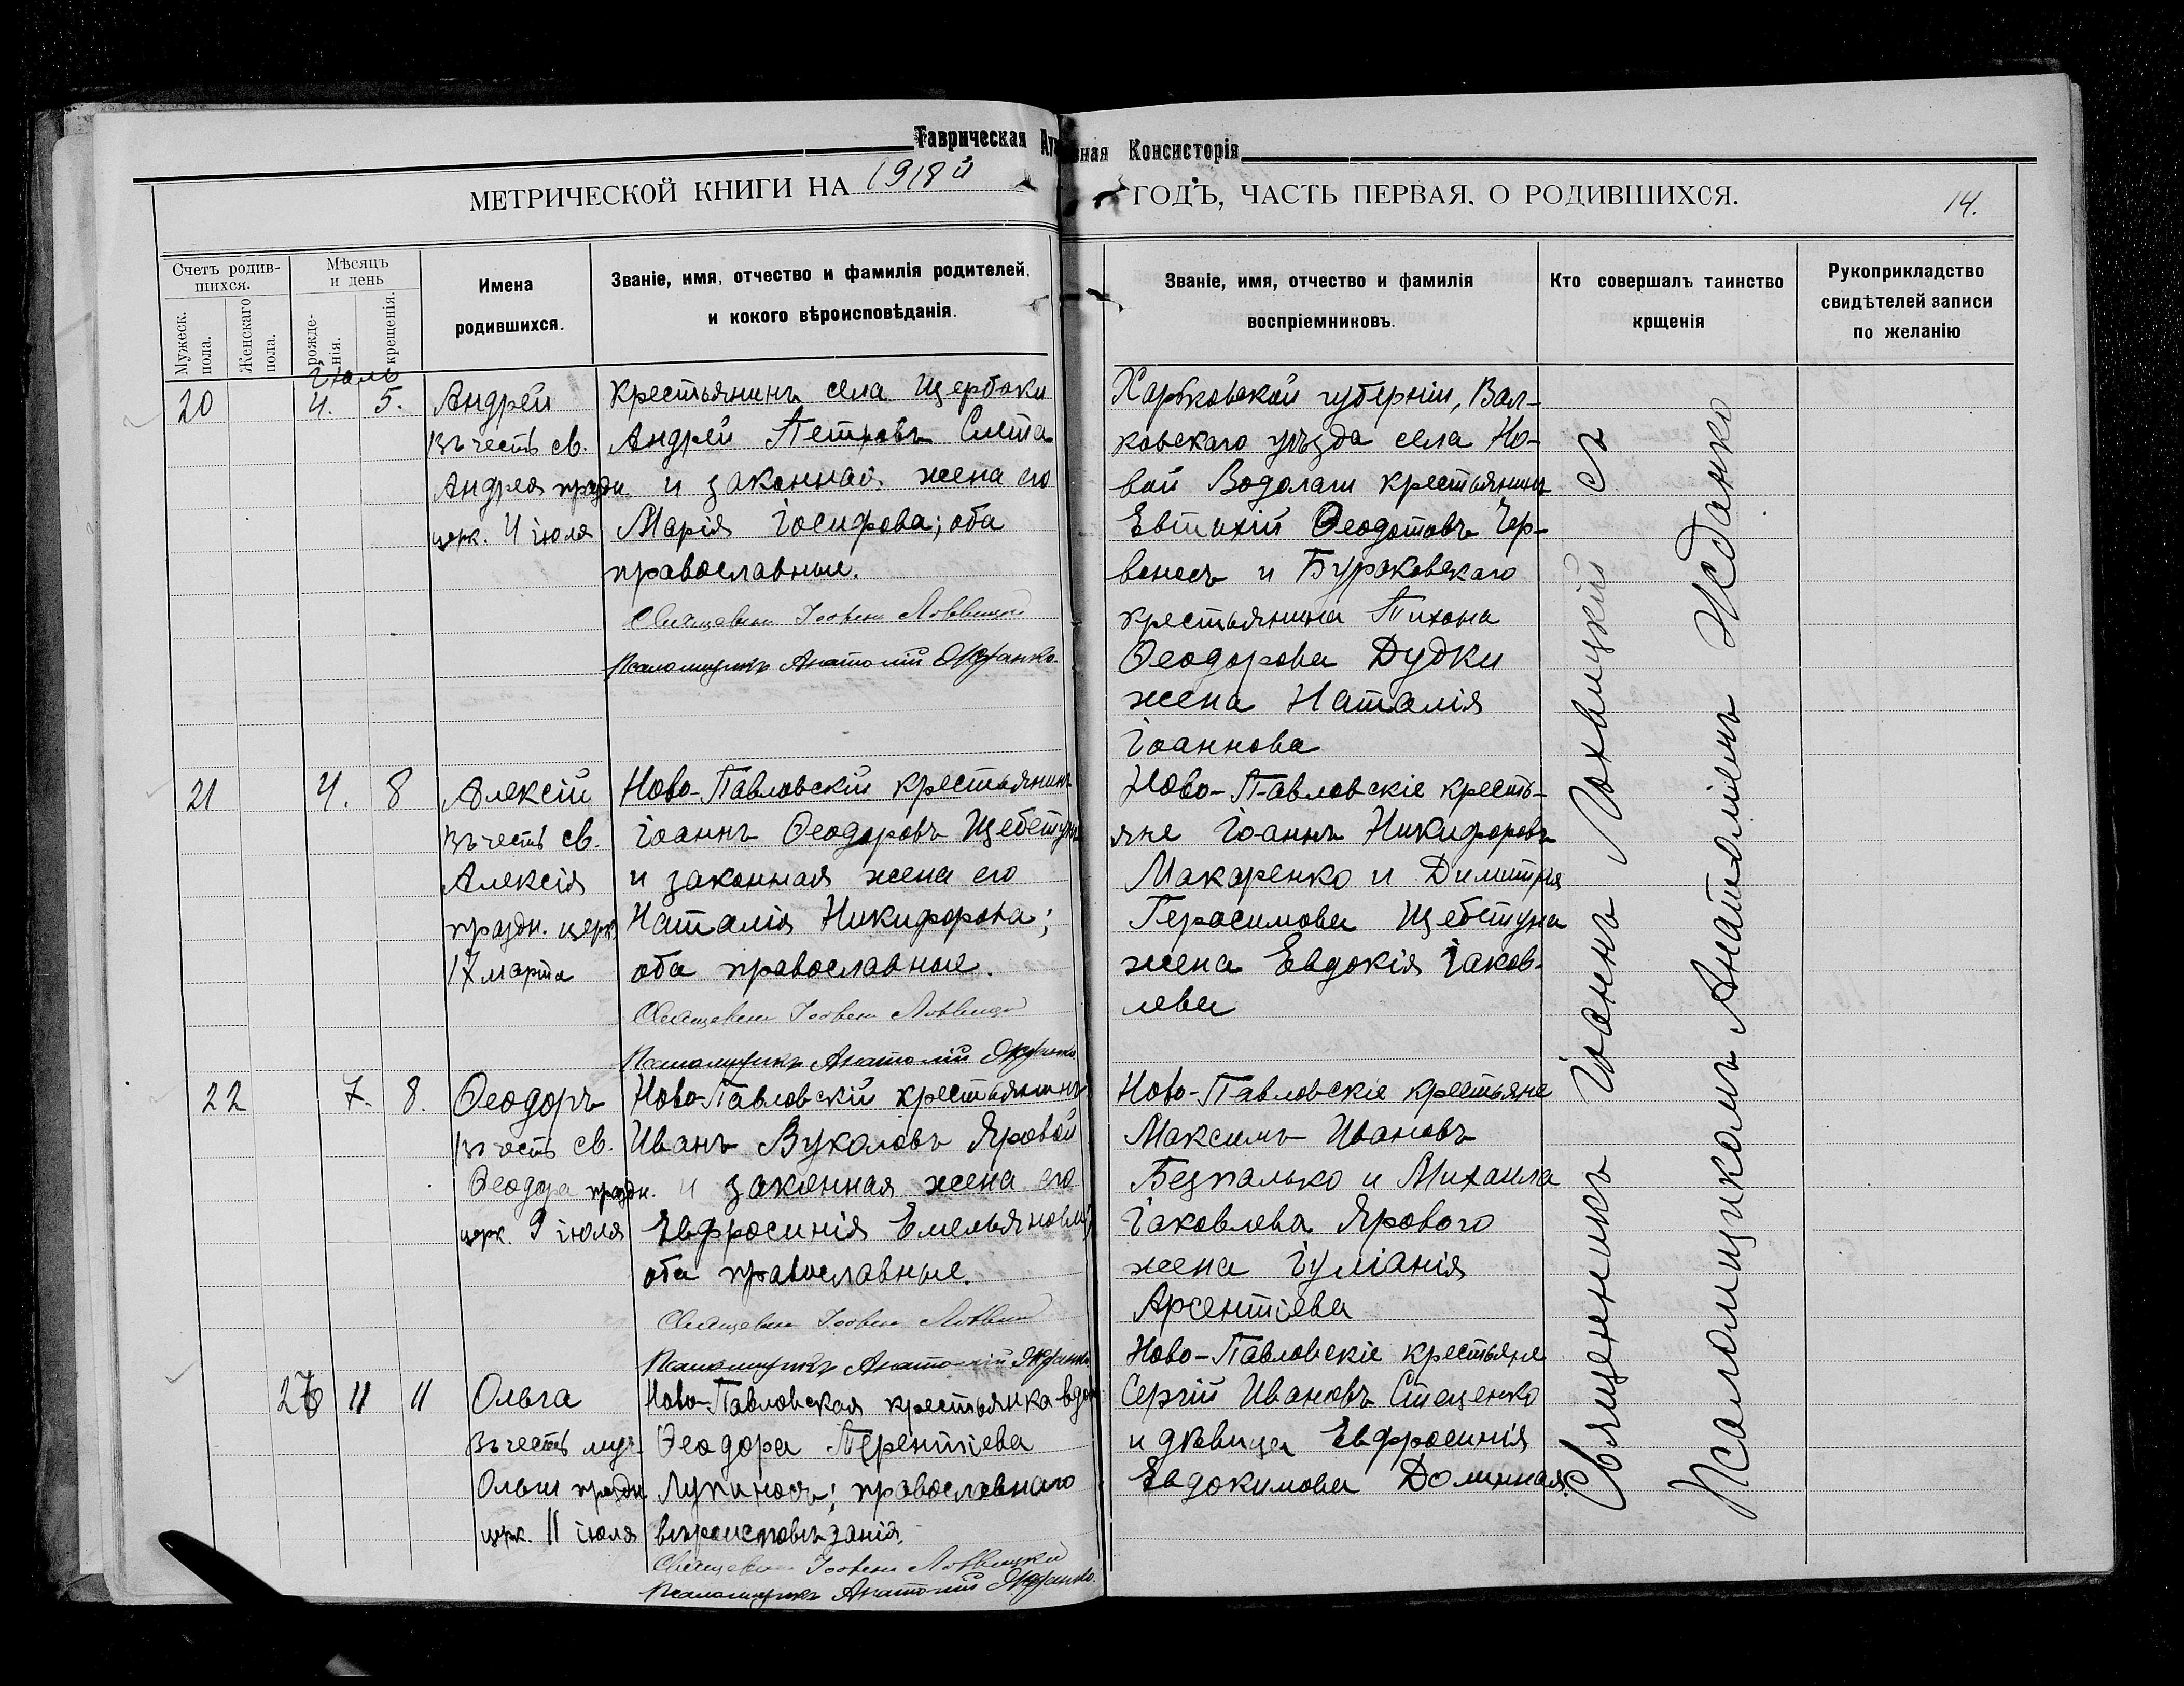 Таврическая Ду
вная Консисторія
МЕТРИЧЕСКОЙ КНИГИ НА 1918й
ГОДЪ, ЧАСТЬ ПЕРВАЯ, О РОДИВШИХСЯ.
14.
Счетъ родив-
шихся.
Мужеск.
пола.
Женскаго
пола.
Мѣсяцъ
и день
рожде-
нія.
крещенія.
Имена
родившихся.
Званіе, имя, отчество и фамилія родителей,
и кокого вѣроисповѣданія.
Званіе, имя, отчество и фамилія
воспріемниковъ.
Кто совершалъ таинство
крщенія
Рукоприкладство
свидѣтелей записи
по желанію
Іюль
20
4. 5.
Андрей
въ честь св.
Андрея праздн.
церк. 4 іюля
крестьянинъ села Щербаки
Андрей Петровъ Смета
и законная жена его
Марія Іосифова; оба
православные.
Священникъ
Псаломщикъ Анатолій Жданко.
Харьковской губерніи, Вал-
ковскаго уѣзда села Но-
вой Водолаги крестьянинъ
Евтихій Ѳеодотовъ Чер-
вонесъ и Бураковскаго
крестьянина Тихона
Ѳеодорова Дудки
жена Наталія
Іоаннова
21
4. 8
Алексій
въ честь св.
Алексія
праздн. церк.
17 марта
Ново-Павловскій крестьянинъ
Іоаннъ Ѳеодоровъ Щебетунъ
и законная жена его
Наталія Никифорова;
оба православные.
Священникъ
Псаломщикъ Анатолій Жданко
Ново-Павловскіе кресть-
яне Іоаннъ Никифоровъ
Макаренко и Димитрія
Герасимова Щебетуна
жена Евдокія Іаков-
лева
22
7. 8.
Ѳеодоръ
въ честь св.
Ѳеодора праздн.
церк. 9 іюля
Ново-Павловскій крестьянинъ
Иванъ Вуколовъ Яровой
и законная жена его
Евфросинія Емельянова;
оба православные.
Священникъ
Псаломщикъ Анатолій Жданко
Ново-Павловскіе крестьяне
Максимъ Ивановъ
Безпалько и Михаила
Іаковлева Ярового
жена Іуліанія
Арсентіева
11 11
Ольга
въ честь муч.
Ольги праздн.
церк. 11 іюля
Ново-Павловская крестьянка-вдова
Ѳеодора Терентіева
православнаго
вѣроисповѣданія.
Священникъ
Псаломщикъ Анатолій Жданко.
Ново-Павловскіе крестьяне
Сергій Ивановъ Стеценко
и дѣвица Евфросинія
Евдокимова Долинная.
Священникъ Іоаннъ Лохвицкій съ
Псаломщикомъ Анатоліемъ Жданко